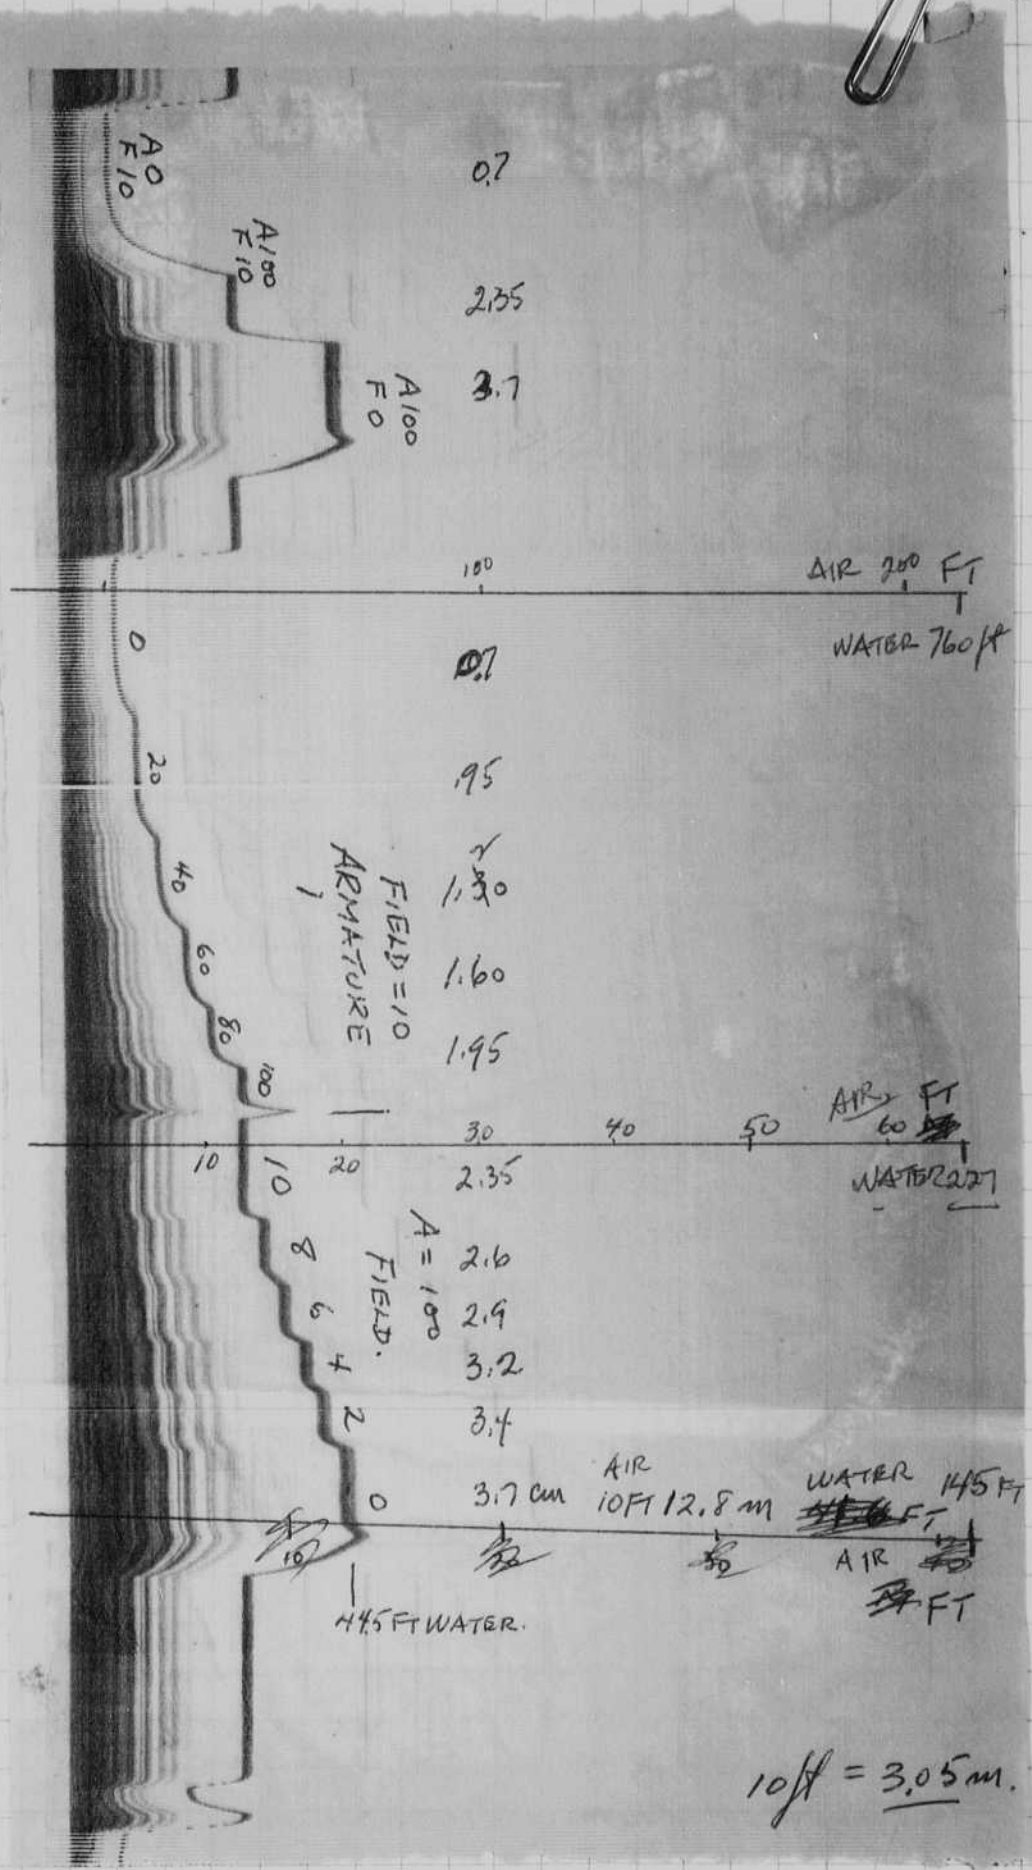 A0
F10
0.7
A100
F10
2.35
A100
F0
3.7
100
AIR 200 FT
WATER 760 ft
0
0.7
20
.95
40
2
1.30
FIELD = 10
ARMATURE
60
1.60
80
1.95
100
AIR, FT
10 20 30 40 50 60
WATER 227
10
2.35
A = 100
FIELD.
8
2.6
6
2.9
4
3.2
2
3.4
0
3.7 cm
AIR
10FT 12.8 m
WATER 145 FT
FT
10
AIR
FT
445 FT WATER.
10 ft = 3.05 m.